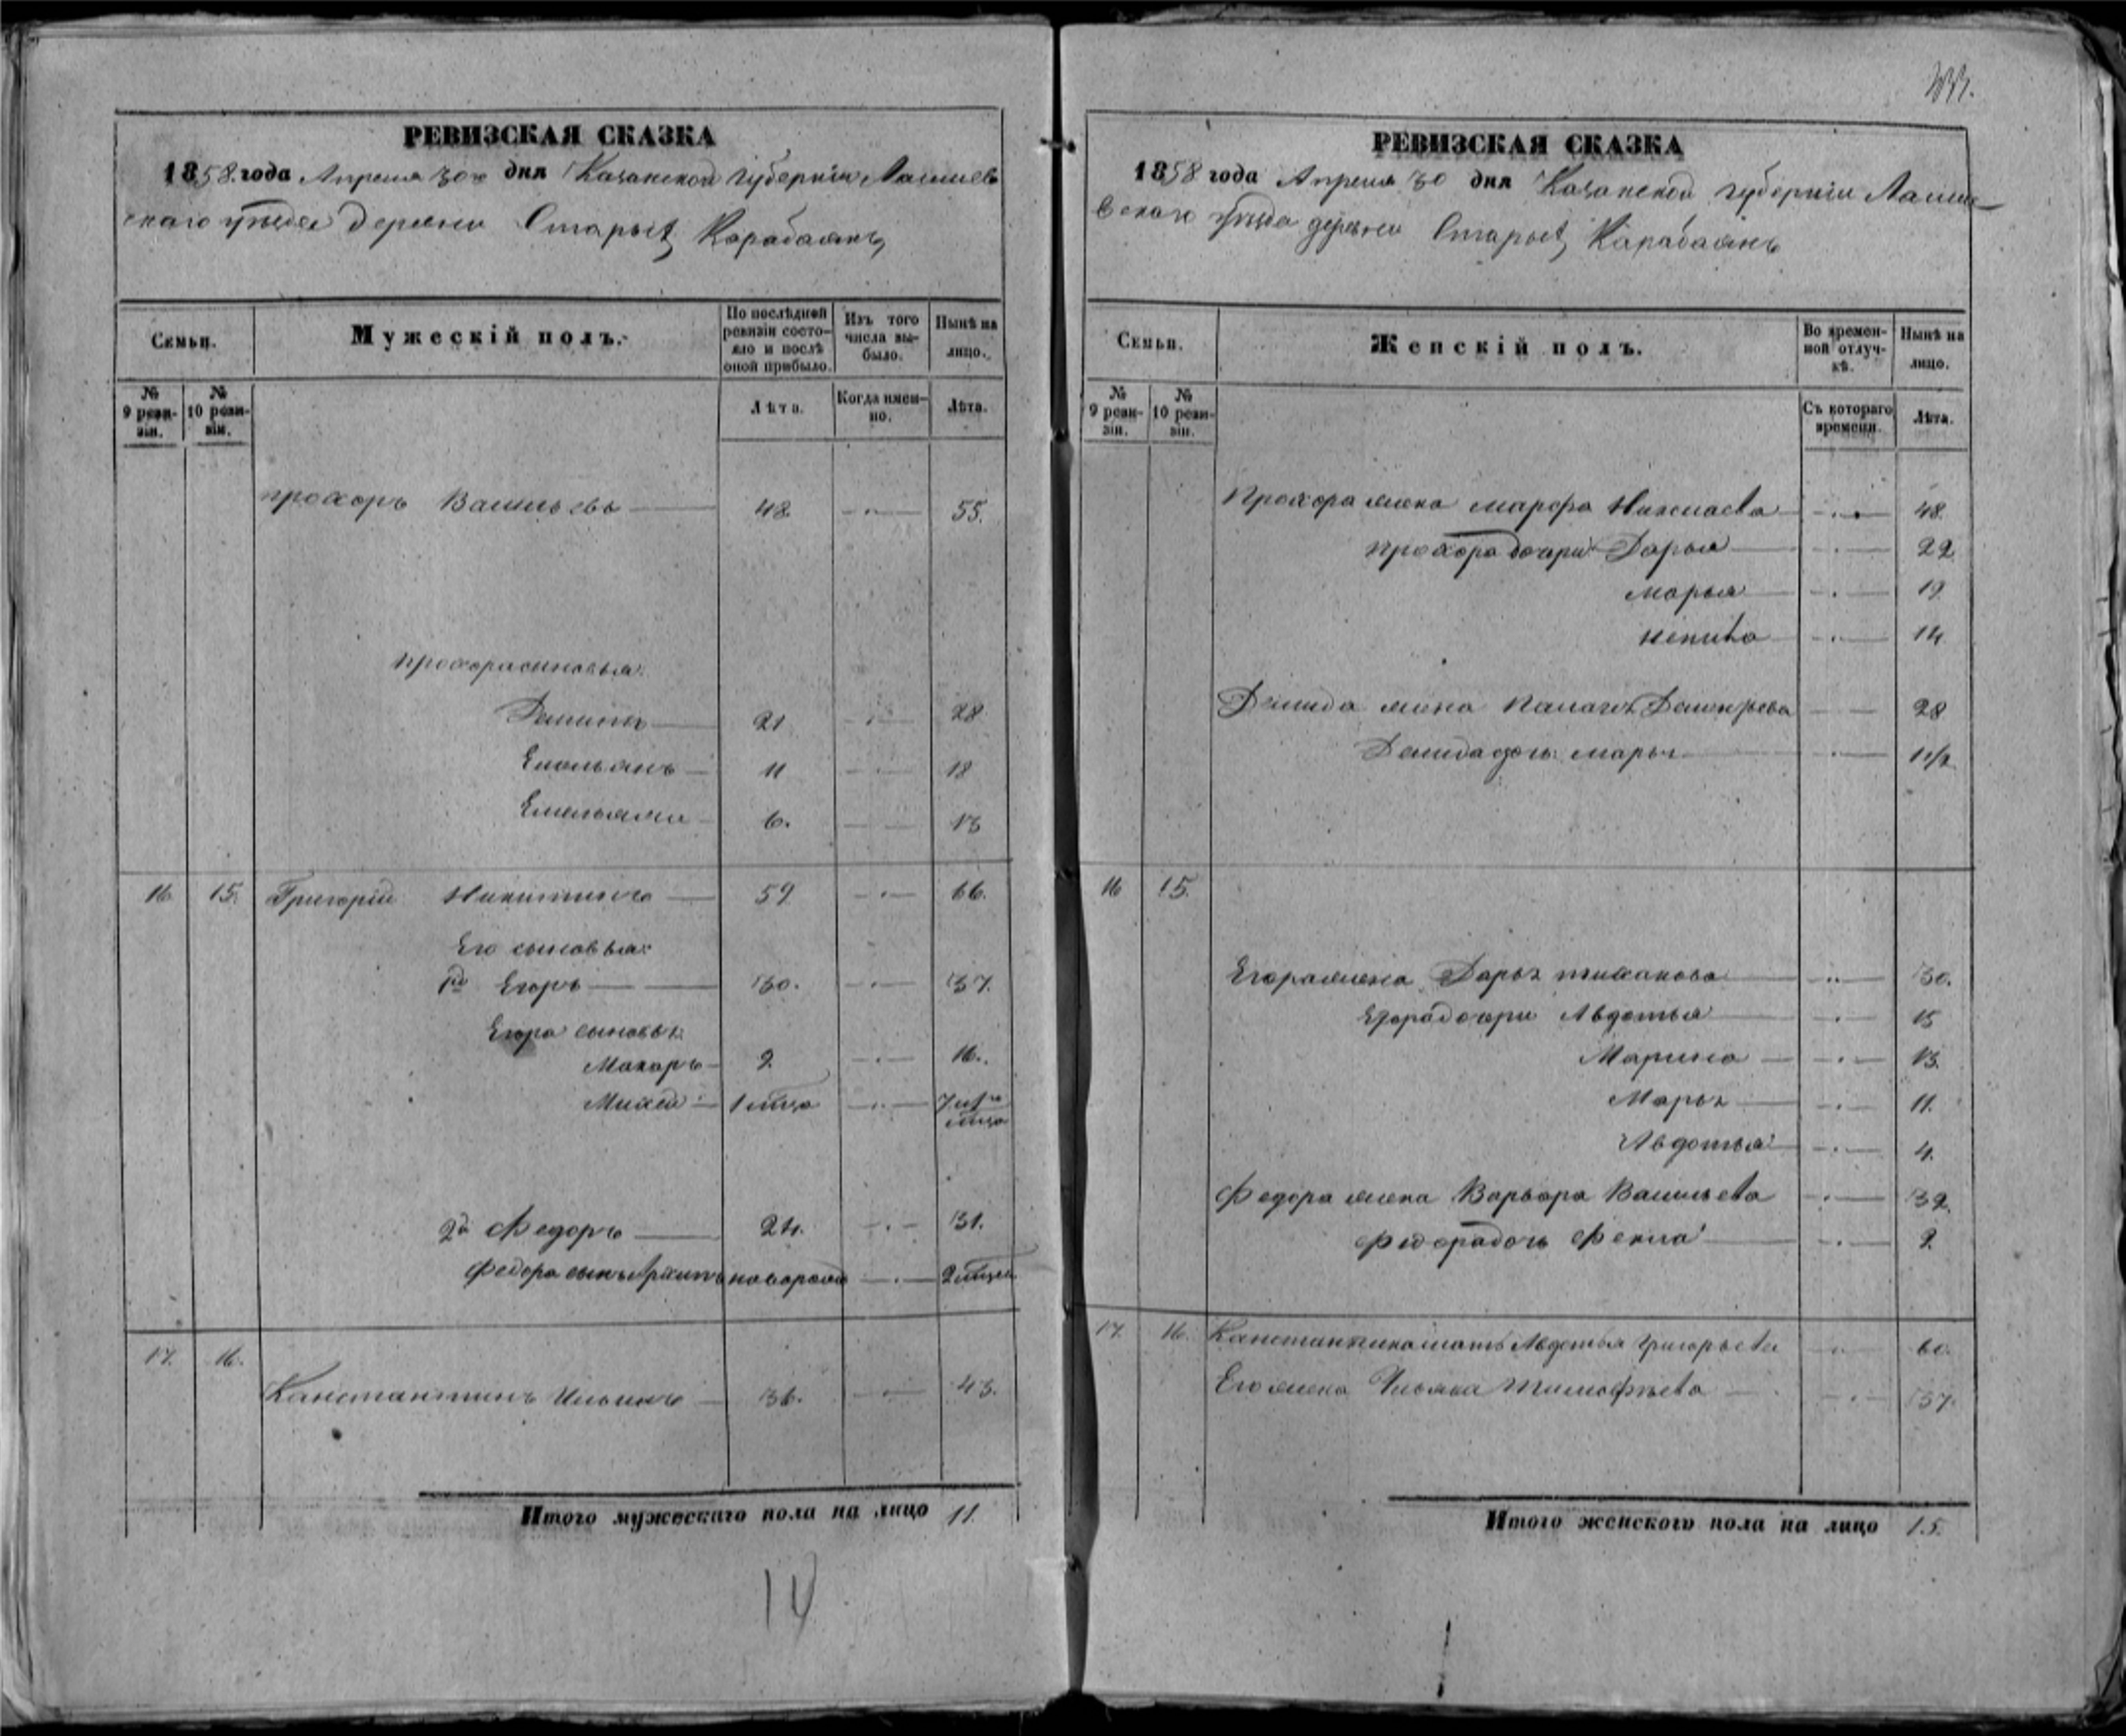 РЕВИЗСКАЯ СКАЗКА
1858 года Апреля 30го дня Казанской губернiи Лаишев
скаго уѣзда деревни Старыхъ Карабаянъ
Семьи.
Мужескiй полъ.
По послѣдней ревизiи состояло и послѣ оной прибыло.
Изъ того числа выбыло.
Нынѣ на лицо.
№ 9 ревизiи.
№ 10 ревизiи.
Лѣта.
Когда именно.
Лѣта.
прохоръ Васильевъ 48 55.
прохора сыновья:
Демидъ 21 28
Емельянъ 11 18
Емельянъ 6. 13
16 15. Григорiй Никитинъ 59 66.
Его сыновья:
1й Егоръ 30. 37.
Егора сыновья:
Макаръ 9 16.
Михей 1 мѣца 7 и 1го мѣца
2й Федоръ 24. 31.
Федора сынъ Архипъ новорож 2 мѣцев
17. 16.
Канстантинъ Ильинъ 36. 43.
Итого мужескаго пола на лицо 11.
14
РЕВИЗСКАЯ СКАЗКА
1858 года Апреля 30 дня Казанской губернiи Лаише
вскаго уѣзда деревни Старыхъ Карабаянъ
Семьи.
Женскiй полъ.
Во временной отлучкѣ.
Нынѣ на лицо.
№ 9 ревизiи.
№ 10 ревизiи.
Съ котораго времени.
Лѣта.
Прохора жена марфа Николаева 48.
прохора дочери Дарья 22
марья 19
14
Демида жена Палагея 28
Демида дочь марья 1 1/2
16 15.
Егора жена Дарья тиханова 30.
Егора дочери Авдотья 15
Марина 13.
Марья 11.
Авдотья 4.
Федора жена Варвара Васильева 32.
Федора дочь Фекла 9.
17. 16. Канстантина мать Авдотья григорьева 60.
Его жена Ульяна Тимофѣева 37.
Итого женского пола на лицо 15.